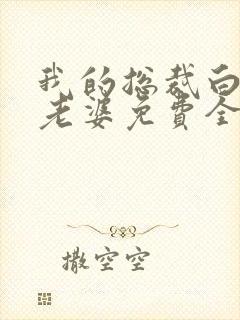 我的总裁白
老婆免费全
撒空空